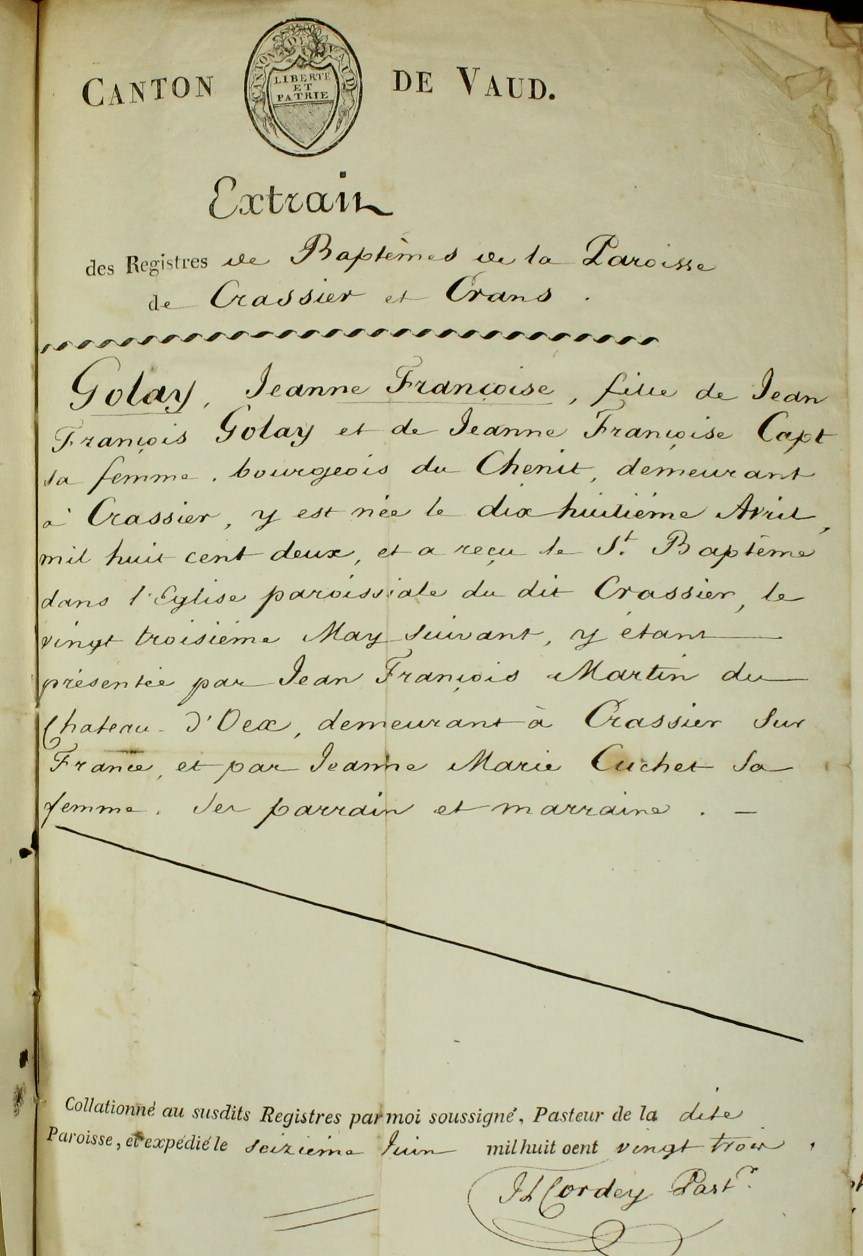 CANTON DE VAUD.
CANTON DE VAUD
LIBERTE
ET
PATRIE
Extrait
des Registres de Baptêmes de la Paroisse
de Crassier et Crans.
Golay, Jeanne Françoise, fille de Jean
François Golay et de Jeanne Françoise Capt
sa femme. bourgeois du Chenit, demeurant
à Crassier, y est née le dix huitiéme Avril,
mil huit cent deux, et a reçu le St. Baptême
dans l'Eglise paroissiale du dit Crassier, le
vingt troisiéme May suivant, y étant
présentée par Jean François Martin du
Chateau-d'Oex, demeurant à Crassier sur
France, et par Jeanne Marie Cuchet sa
femme. Ses parrain et marraine. —
Collationné au susdits Registres par moi soussigné, Pasteur de la dite
Paroisse, et expédié le seizieme Juin mil huit cent vingt trois.
Cordey Past.r